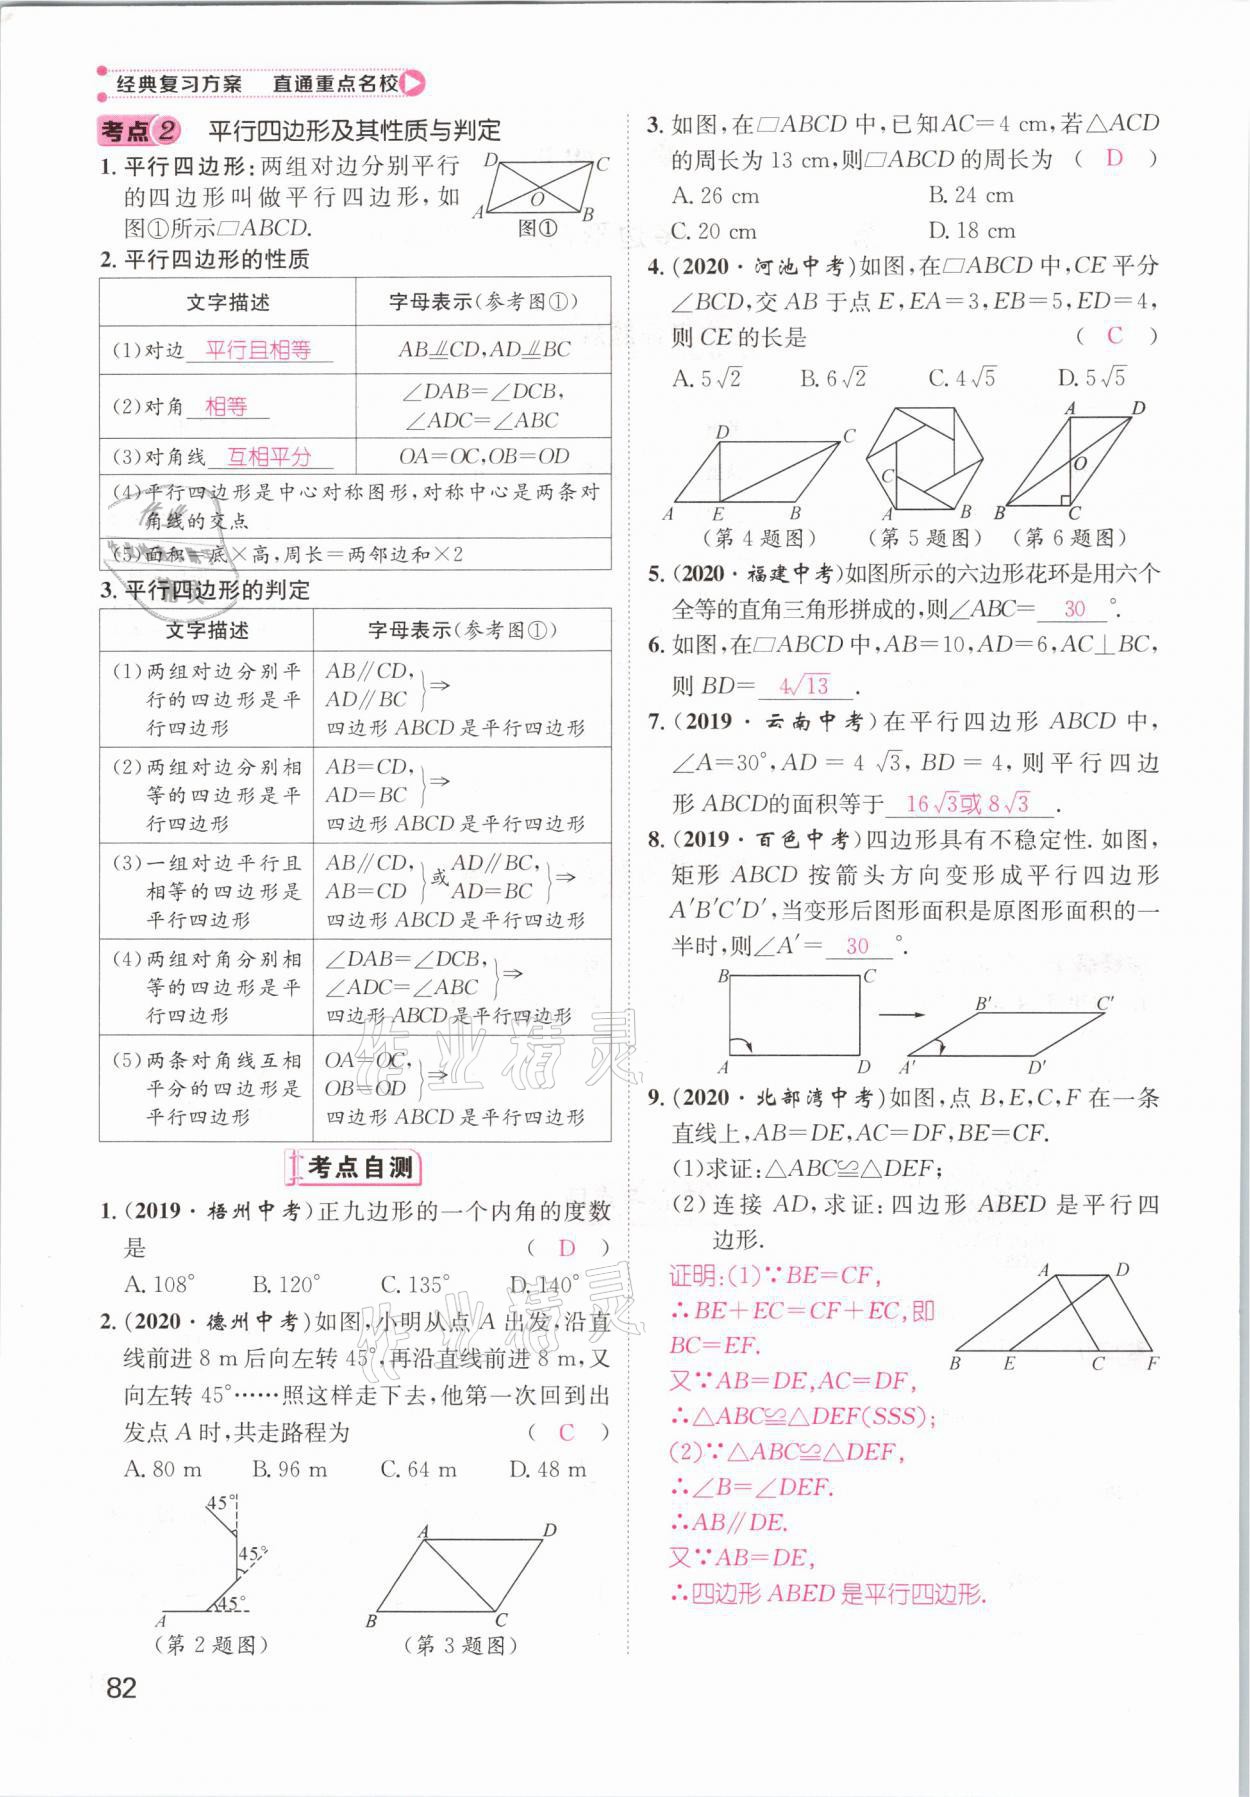 经典复习方案 直通重点名校
考点2 平行四边形及其性质与判定
1. 平行四边形:两组对边分别平行
的四边形叫做平行四边形,如
图①所示▱ABCD.
D C
O
A B
图①
2. 平行四边形的性质
文字描述 字母表示(参考图①)
(1)对边 平行且相等 AB⫽CD,AD⫽BC
(2)对角 相等 ∠DAB=∠DCB,
∠ADC=∠ABC
(3)对角线 互相平分 OA=OC,OB=OD
(4)平行四边形是中心对称图形,对称中心是两条对
角线的交点
(5)面积=底×高,周长=两邻边和×2
3. 平行四边形的判定
文字描述 字母表示(参考图①)
(1)两组对边分别平
行的四边形是平
行四边形
AB∥CD,
AD∥BC }⇒
四边形 ABCD 是平行四边形
(2)两组对边分别相
等的四边形是平
行四边形
AB=CD,
AD=BC }⇒
四边形 ABCD 是平行四边形
(3)一组对边平行且
相等的四边形是
平行四边形
AB∥CD, AD∥BC,
AB=CD }或 AD=BC }⇒
四边形 ABCD 是平行四边形
(4)两组对角分别相
等的四边形是平
行四边形
∠DAB=∠DCB,
∠ADC=∠ABC }⇒
四边形 ABCD是平行四边形
(5)两条对角线互相
平分的四边形是
平行四边形
OA=OC,
OB=OD }⇒
四边形 ABCD 是平行四边形
考点自测
1. (2019·梧州中考)正九边形的一个内角的度数
是 ( D )
A. 108° B. 120° C. 135° D. 140°
2. (2020·德州中考)如图,小明从点 A 出发,沿直
线前进 8 m 后向左转 45°,再沿直线前进 8 m,又
向左转 45°……照这样走下去,他第一次回到出
发点 A 时,共走路程为 ( C )
A. 80 m B. 96 m C. 64 m D. 48 m
45°
45°
45°
A
(第 2 题图)
A D
B C
(第 3 题图)
82
3. 如图,在▱ABCD 中,已知AC=4 cm,若△ACD
的周长为 13 cm,则▱ABCD 的周长为 ( D )
A. 26 cm B. 24 cm
C. 20 cm D. 18 cm
4. (2020·河池中考)如图,在▱ABCD 中,CE 平分
∠BCD,交 AB 于点 E,EA=3,EB=5,ED=4,
则 CE 的长是 ( C )
A. 5√2 B. 6√2 C. 4√5 D. 5√5
D C
A E B
(第 4 题图)
C
A B
(第 5 题图)
A D
O
B C
(第 6 题图)
5. (2020·福建中考)如图所示的六边形花环是用六个
全等的直角三角形拼成的,则∠ABC= 30 °.
6. 如图,在▱ABCD 中,AB=10,AD=6,AC⊥BC,
则 BD= 4√13 .
7. (2019·云南中考)在平行四边形 ABCD 中,
∠A=30°,AD=4√3,BD=4,则平行四边
形 ABCD的面积等于 16√3或 8√3 .
8. (2019·百色中考)四边形具有不稳定性. 如图,
矩形 ABCD 按箭头方向变形成平行四边形
A′B′C′D′,当变形后图形面积是原图形面积的一
半时,则∠A′= 30 °.
B C
A D
B′ C′
A′ D′
9. (2020·北部湾中考)如图,点 B,E,C,F 在一条
直线上,AB=DE,AC=DF,BE=CF.
(1)求证:△ABC≌△DEF;
(2)连接 AD,求证:四边形 ABED 是平行四
边形.
A D
B E C F
证明:(1)∵BE=CF,
∴BE+EC=CF+EC,即
BC=EF.
又∵AB=DE,AC=DF,
∴△ABC≌△DEF(SSS);
(2)∵△ABC≌△DEF,
∴∠B=∠DEF.
∴AB∥DE.
又∵AB=DE,
∴四边形 ABED 是平行四边形.
作业精灵
作业精灵